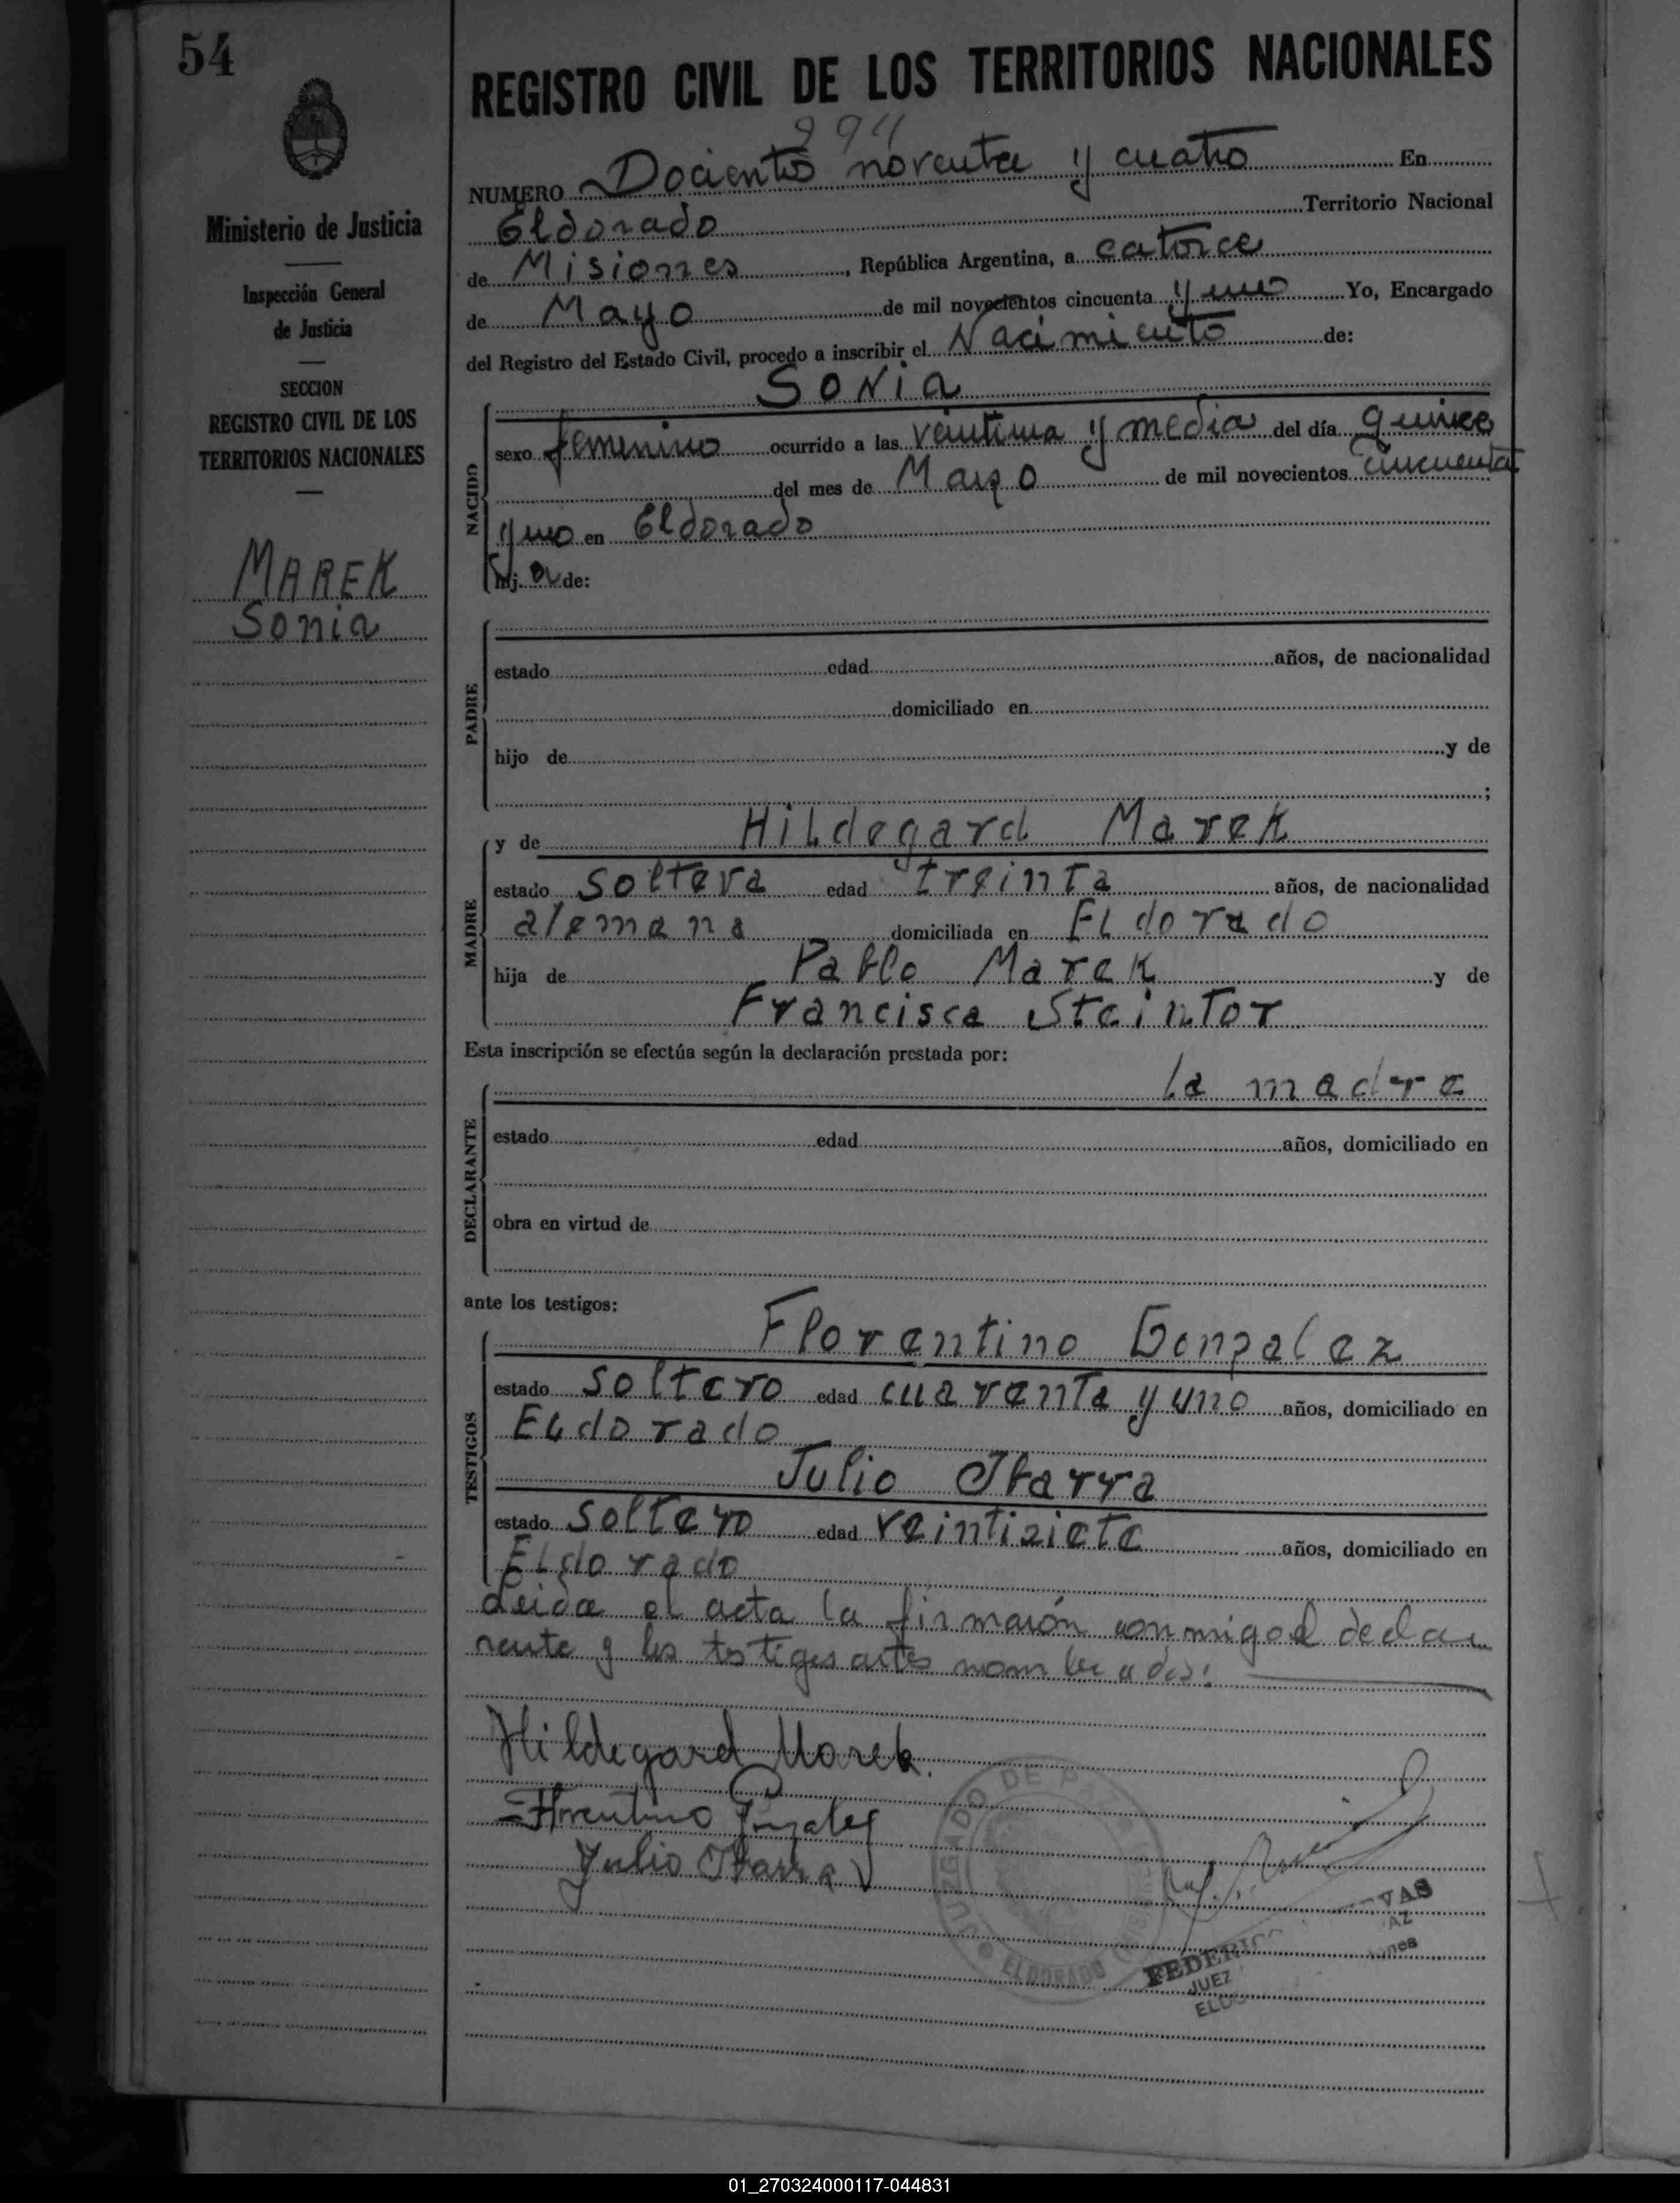 54
Ministerio de Justicia
Inspección General
de Justicia
SECCION
REGISTRO CIVIL DE LOS
TERRITORIOS NACIONALES
MAREK
Sonia
REGISTRO CIVIL DE LOS TERRITORIOS NACIONALES
294
NUMERO Docientos noventa y cuatro En
Eldorado Territorio Nacional
de Misiones, República Argentina, a catorce
de Mayo de mil novecientos cincuenta y uno Yo, Encargado
del Registro del Estado Civil, procedo a inscribir el Nacimiento de:
SONia
NACIDO
sexo femenino ocurrido a las veintiuna y media del día quince
del mes de Marzo de mil novecientos cincuenta
y uno en Eldorado
hij. a de:
PADRE
estado edad años, de nacionalidad
domiciliado en
hijo de y de
;
MADRE
y de Hildegard Marek
estado soltera edad treinta años, de nacionalidad
alemana domiciliada en Eldorado
hija de Pablo Marek y de
Francisca Steintor
Esta inscripción se efectúa según la declaración prestada por:
la madre
DECLARANTE
estado edad años, domiciliado en
obra en virtud de
ante los testigos:
TESTIGOS
Florentino Gonzalez
estado soltero edad cuarenta y uno años, domiciliado en
Eldorado
Julio Ibarra
estado soltero edad veintisiete años, domiciliado en
Eldorado
Leida el acta la firmaron conmigo el decla
rante y los testigos antes nombrados:
Hildegard Marek.
Florentino Gonzalez
Julio Ibarra
JUZGADO DE PAZ
ELDORADO
FEDERICO
JUEZ
01_270324000117-044831